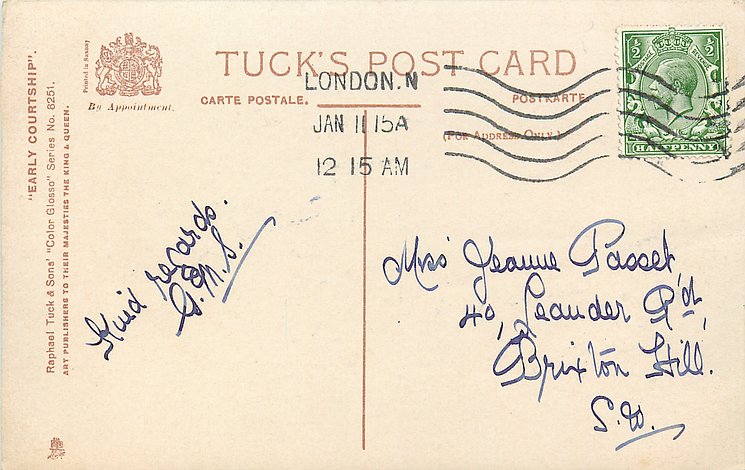 "EARLY COURTSHIP".
Raphael Tuck & Sons' "Color Glosso" Series No. 8251.
ART PUBLISHERS TO THEIR MAJESTIES THE KING & QUEEN.
Printed in Saxony
By Appointment.
TUCK'S POST CARD
CARTE POSTALE.
POSTKARTE
(FOR ADDRESS ONLY.)
LONDON.N
JAN 11 15A
12 15 AM
½ ½
HALFPENNY
Kind regards.
G.M.S.
Miss Jeanne Passet,
40, Leander Rd,
Brixton Hill.
S.W.